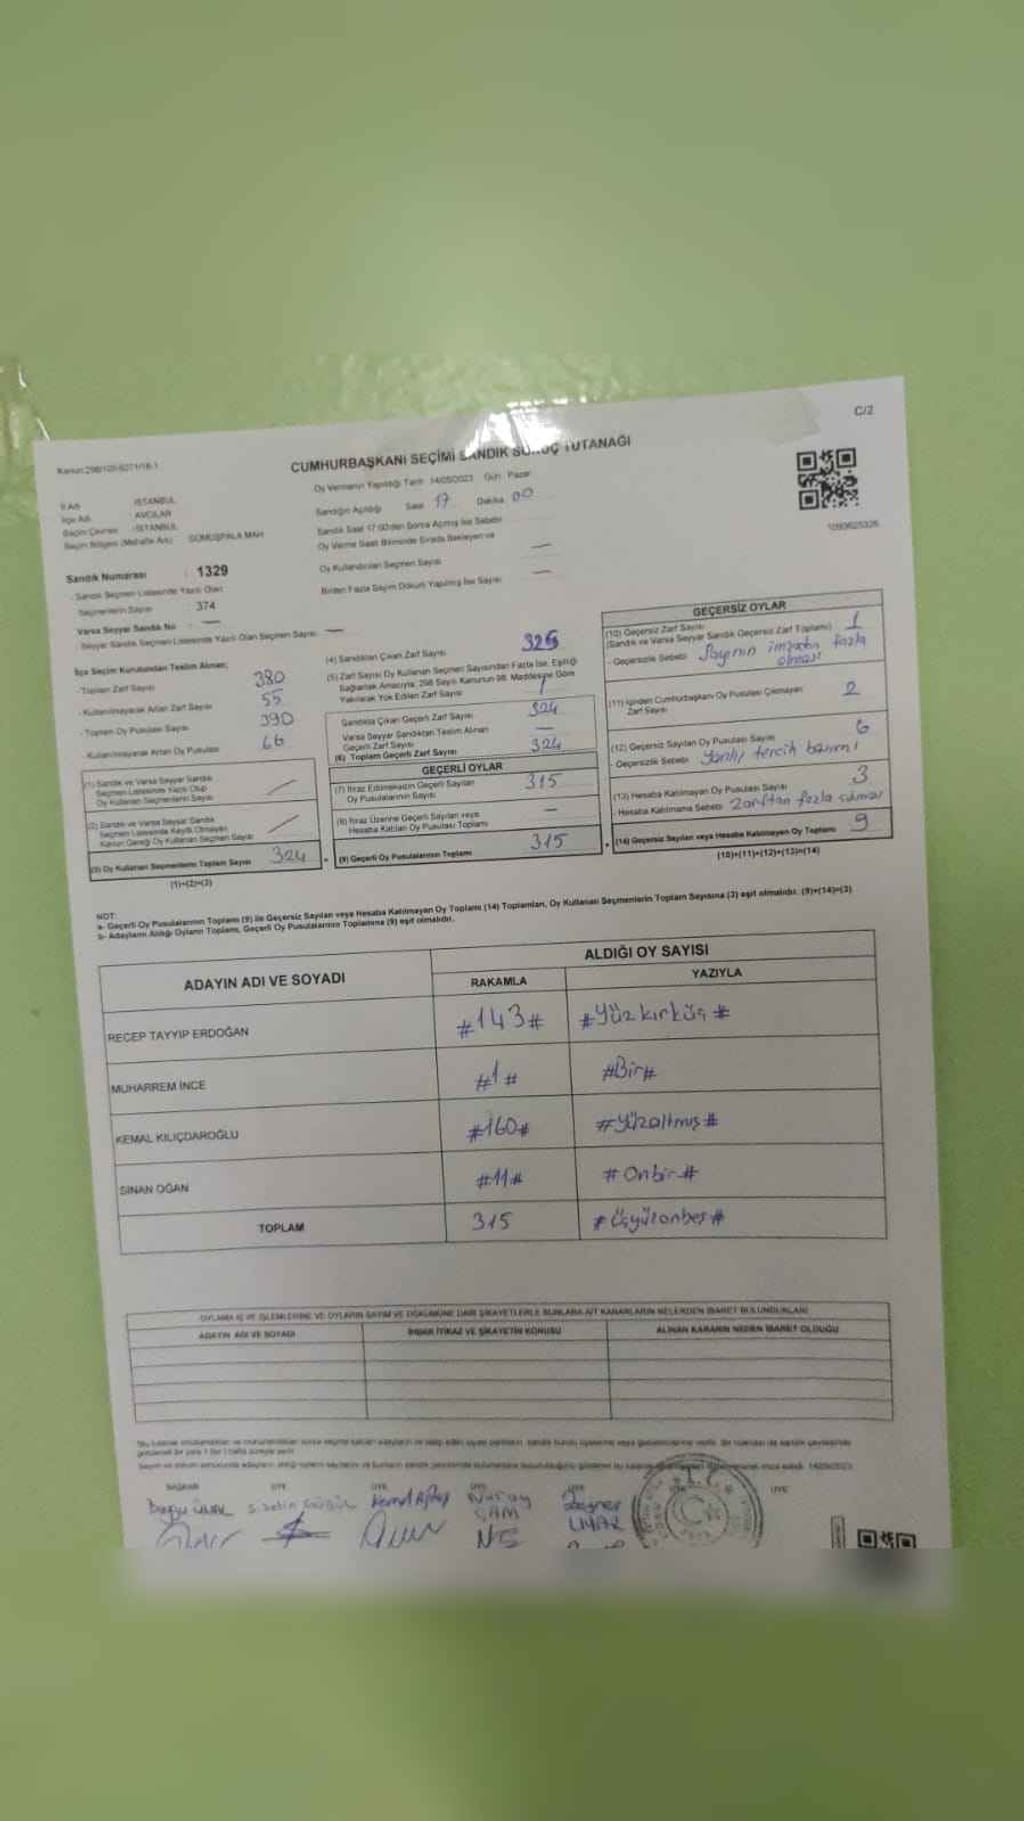 C/2
Kanun:298/105-6271/16-1
CUMHURBAŞKANI SEÇİMİ SANDIK SONUÇ TUTANAĞI
Oy Vermenin Yapıldığı Tarih 14/05/2023 Gün: Pazar
İl Adı : İSTANBUL
İlçe Adı : AVCILAR
Seçim Çevresi : İSTANBUL
Seçim Bölgesi (Mahalle Adı) GÜMÜŞPALA MAH
Sandığın Açıldığı Saat 17 Dakika 00
Sandık Saat 17:00'den Sonra Açılmış İse Sebebi
Oy Verme Saati Bitiminde Sırada Bekleyen ve
Oy Kullandırılan Seçmen Sayısı —
Birden Fazla Sayım Döküm Yapılmış İse Sayısı —
Sandık Numarası : 1329
- Sandık Seçmen Listesinde Yazılı Olan
Seçmenlerin Sayısı : 374
Varsa Seyyar Sandık No : —
Seyyar Sandık Seçmen Listesinde Yazılı Olan Seçmen Sayısı: —
İlçe Seçim Kurulundan Teslim Alınan;
- Toplam Zarf Sayısı 380
- Kullanılmayarak Artan Zarf Sayısı 55
- Toplam Oy Pusulası Sayısı 390
- Kullanılmayarak Artan Oy Pusulası 66
(1) Sandık ve Varsa Seyyar Sandık
Seçmen Listesinde Yazılı Olup
Oy Kullanan Seçmenlerin Sayısı
(2) Sandık ve Varsa Seyyar Sandık
Seçmen Listesinde Kayıtlı Olmayan
Kanun Gereği Oy Kullanan Seçmen Sayısı
(3) Oy Kullanan Seçmenlerin Toplam Sayısı 324
(1)+(2)=(3)
(4) Sandıktan Çıkan Zarf Sayısı 325
(5) Zarf Sayısı Oy Kullanan Seçmen Sayısından Fazla İse, Eşitliği
Sağlamak Amacıyla, 298 Sayılı Kanunun 98. Maddesine Göre
Yakılarak Yok Edilen Zarf Sayısı 1
Sandıkta Çıkan Geçerli Zarf Sayısı 324
Varsa Seyyar Sandıktan Teslim Alınan
Geçerli Zarf Sayısı —
(6) Toplam Geçerli Zarf Sayısı 324
GEÇERLİ OYLAR
(7) İtiraz Edilmeksizin Geçerli Sayılan
Oy Pusulalarının Sayısı 315
(8) İtiraz Üzerine Geçerli Sayılan veya
Hesaba Katılan Oy Pusulası Toplamı —
(9) Geçerli Oy Pusulalarının Toplamı 315
GEÇERSİZ OYLAR
(10) Geçersiz Zarf Sayısı
(Sandık ve Varsa Seyyar Sandık Geçersiz Zarf Toplamı) 1
- Geçersizlik Sebebi: Sayının imzadan fazla
olması
(11) İçinden Cumhurbaşkanı Oy Pusulası Çıkmayan
Zarf Sayısı 2
(12) Geçersiz Sayılan Oy Pusulası Sayısı 6
- Geçersizlik Sebebi: Yanlış tercih basımı
(13) Hesaba Katılmayan Oy Pusulası Sayısı 3
- Hesaba Katılmama Sebebi: Zarftan fazla çıkması
(14) Geçersiz Sayılan veya Hesaba Katılmayan Oy Toplamı 9
(10)+(11)+(12)+(13)=(14)
NOT:
a- Geçerli Oy Pusulalarının Toplamı (9) ile Geçersiz Sayılan veya Hesaba Katılmayan Oy Toplamı (14) Toplamları, Oy Kullanan Seçmenlerin Toplam Sayısına (3) eşit olmalıdır. (9)+(14)=(3)
b- Adayların Aldığı Oyların Toplamı, Geçerli Oy Pusulalarının Toplamına (9) eşit olmalıdır.
ADAYIN ADI VE SOYADI
ALDIĞI OY SAYISI
RAKAMLA YAZIYLA
RECEP TAYYIP ERDOĞAN #143# #Yüzkırküç#
MUHARREM İNCE #1# #Bir#
KEMAL KILIÇDAROĞLU #160# #Yüzaltmış#
SİNAN OĞAN #11# #Onbir#
TOPLAM 315 #Üçyüzonbeş#
OYLAMA İŞ VE İŞLEMLERİNE VE OYLARIN SAYIM VE DÖKÜMÜNE DAİR ŞİKAYETLERLE BUNLARA AİT KARARLARIN NELERDEN İBARET BULUNDUKLARI
ADAYIN ADI VE SOYADI İHBAR İTİRAZ VE ŞİKAYETİN KONUSU ALINAN KARARIN NEDEN İBARET OLDUĞU
BAŞKAN ÜYE ÜYE ÜYE ÜYE ÜYE
Nuray
T.C.